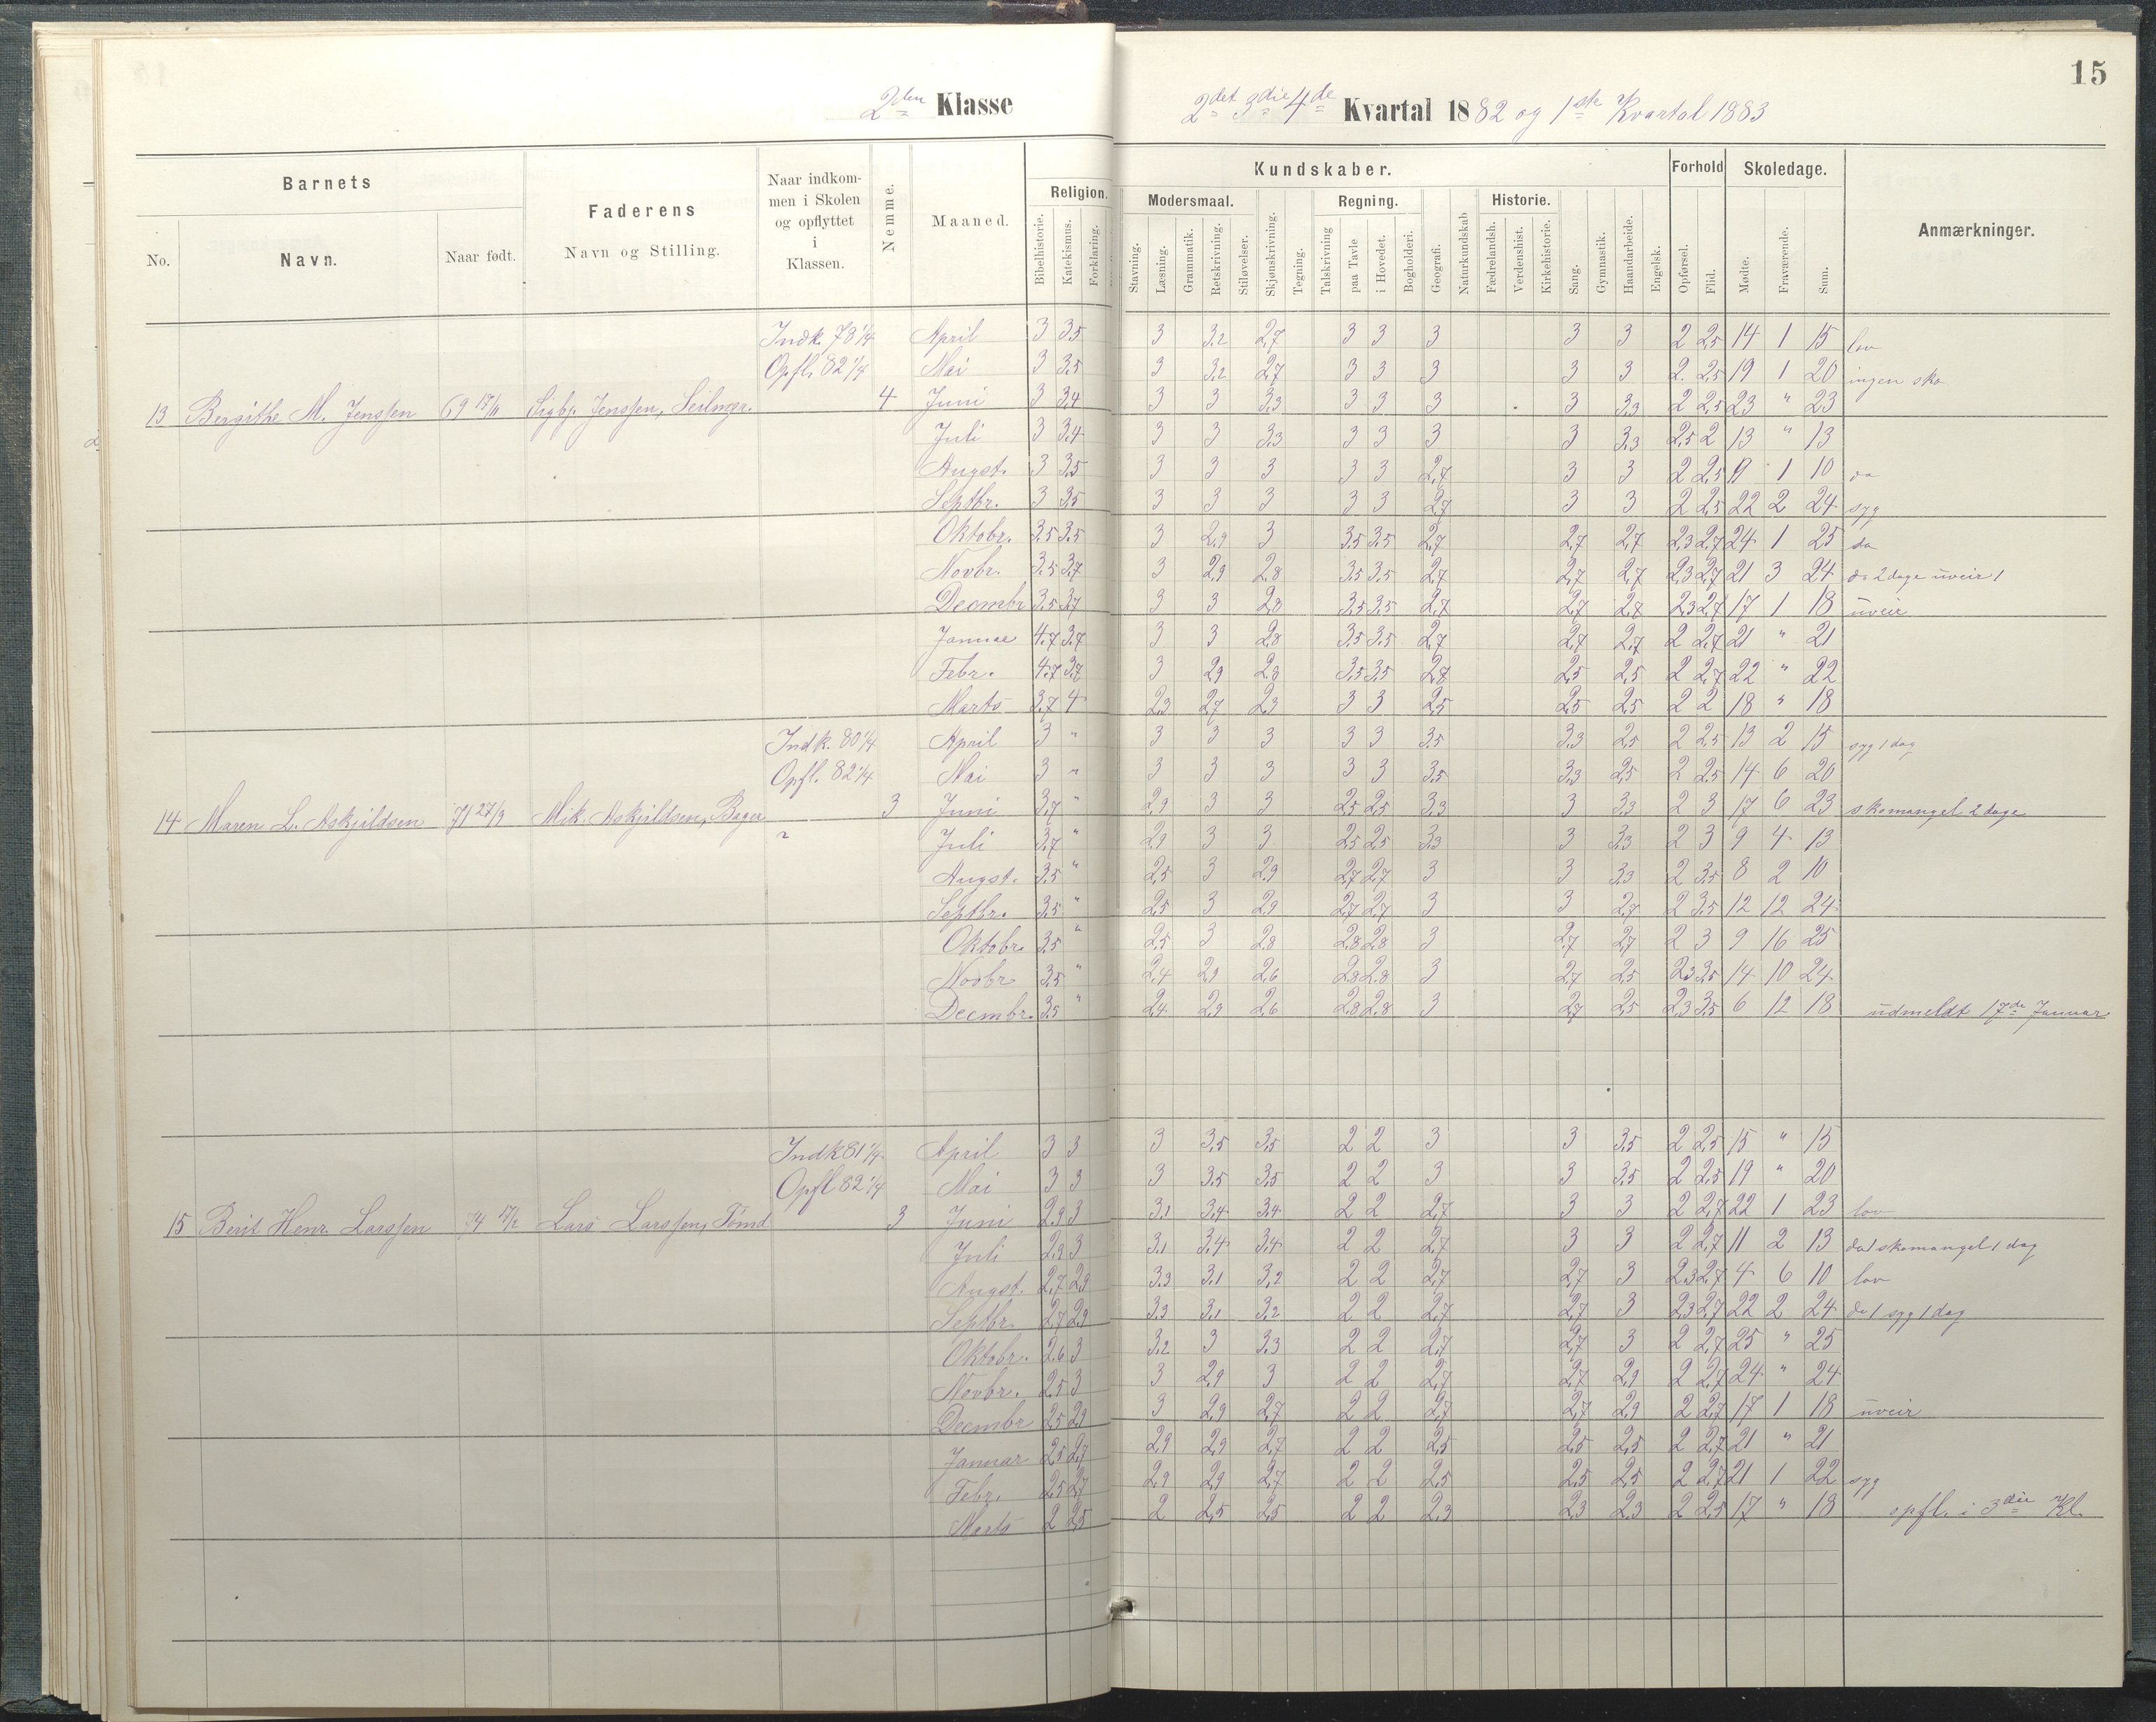 15
2den Klasse
2det 3die 4de Kvartal 1882 og 1ste Kvartal 1883
Barnets
Faderens
Navn og Stilling.
Naar indkommen i Skolen og opflyttet i Klassen.
Nemme.
Maaned.
Religion.
Kundskaber.
Forhold
Skoledage.
Anmærkninger.
Modersmaal.
Regning.
Historie.
No.
Navn.
Naar født.
Bibelhistorie. Katekismus. Forklaring.
Stavning. Læsning. Grammatik. Retskrivning. Stiløvelser. Skjønskrivning. Tegning. Talskrivning paa Tavle i Hovedet. Bogholderi. Geografi. Naturkundskab Fædrelandsh. Verdenshist. Kirkehistorie. Sang. Gymnastik. Haandarbeide. Engelsk. Opførsel. Flid. Mødte. Fraværende. Sum.
Indk. 78 1/4 April 3 3.5 3 3.2 2,7 3 3 3 3 3 2 2,5 14 1 15 lov
Opfl. 82 1/4 Mai 3 3.5 3 3.2 2,7 3 3 3 3 3 2. 2,5 19 1 20 ingen sko
13 Bergithe M. Jenssen 69 17/11 Sigbj. Jenssen, Seilmgr. 4 Juni 3 3.4 3 3 3,3 3 3 3 3 3,3 2 2,5 23 " 23
Juli 3 3.4 3 3 3,3 3 3 3 3 3,3 2,5 2 13 " 13
Augst. 3 3.5 3 3 3 3 3 2,7 3 3 2 2,5 9 1 10 do
Septbr. 3 3.5 3 3 3 3 3 2,7 3 3 2 2,5 22 2 24 syg
Oktobr. 3.5 3.5 3 2,9 3 3.5 3.5 2,7 2,7 2,7 2,3 2,7 24 1 25 do
Novbr. 3.5 3,7 3 2,9 2,8 3.5 3.5 2,7 2,7 2,7 2,3 2,7 21 3 24 do 2 dage uveir 1
Decmbr 3.5 3,7 3 3 2,8 3.5 3.5 2,7 2,7 2,7 2,3 2,7 17 1 18 uveir
Januar 4.7 3.7 3 3 2,8 3.5 3.5 2,7 2,7 2,7 2 2,7 21 " 21
Febr. 4.7 3,7 3 2,9 2,8 3.5 3.5 2,7 2,5 2,5 2 2,7 22 " 22
Marts 3.7 4 2,3 2,7 2,3 3 3 2,5 2,5 2,5 2 2 18 " 18
Indk. 80 1/4 April 3 " 3 3 3 3 3 3.5 3.3 2,5 2 2,5 13 2 15 syg 1 dag
Opfl. 82 1/4 Mai 3 " 3 3 3 3 3 3.5 3.3 2,5 2 2,5 14 6 20
14 Maren L. Askjildsen 71 27/9 Mik. Askjildsen, Bager 3 Juni 3,7 " 2,9 3 3 2,5 2,5 3,3 3 3,3 2 3 17 6 23 skomangel 2 dage
Juli 3,7 " 2,9 3 3 2,5 2,5 3,3 3 3,3 2 3 9 4 13
Augst. 3.5 " 2,5 3 2,9 2,7 2,7 3 3 3,3 2 3.5 8 2 10
Septbr. 3.5 " 2,5 3 2,9 2,7 2,7 3 3 2,7 2 3.5 12 12 24
Oktobr. 3.5 " 2,5 3 2,8 2,8 2,8 3 2,7 2,7 2 3 9 16 25
Novbr 3.5 " 2,4 2,9 2,6 2,8 2,8 3 2,7 2,5 2,3 3.5 14 10 24
Decmbr. 3.5 " 2,4 2,9 2,6 2,8 2,8 3 2,7 2,5 2,3 3.5 6 12 18 udmeldt 17de Januar
Indk 81 1/4 April 3 3 3 3.5 3.5 2 2 3 3 3.5 2 2,5 15 " 15
Opfl 82 1/4 Mai 3 3 3 3.5 3.5 2 2 3 3 3.5 2 2,5 19 " 20
15 Berit Henr. Larssen 74 Lars Larssen, Tømd 3 Juni 2,9 3 3.1 3.4 3.4 2 2 2,7 3 3 2 2,7 22 1 23 lov
Juli 2,9 3 3.1 3.4 3.4 2 2 2,7 3 3 2 2,7 11 2 13 do 1 skomangel 1 dag
Augst. 2,7 2,9 3.3 3.1 3,2 2 2 2,7 2,7 3 2,3 2,7 4 6 10 lov
Septbr. 2,7 2,9 3.3 3.1 3,2 2 2 2,7 2,7 3 2,3 2,7 22 2 24 do 1 syg 1 dag
Oktobr. 2,6 3 3.2 3 3.3 2 2 2,7 2,7 3 2 2,7 25 " 25
Novbr. 2,5 3 3 2,9 3 2 2 2,7 2,7 2,9 2 2,7 24 " 24
Decmbr 2,5 2,9 3 2,9 2,7 2 2 2,7 2,7 2,9 2 2,7 17 1 18 uveir
Januar 2,5 2,7 2,9 2,9 2,7 2 2 2,5 2,5 2,5 2 2,7 21 " 21
Febr. 2,5 2,7 2,9 2,9 2,7 2 2 2,5 2,5 2,5 2 2,7 21 1 22 syg
Marts 2 2,5 2 2,5 2,5 2 2 2,3 2,3 2,3 2 2,5 17 " 18 opfl. i 3die Kl.